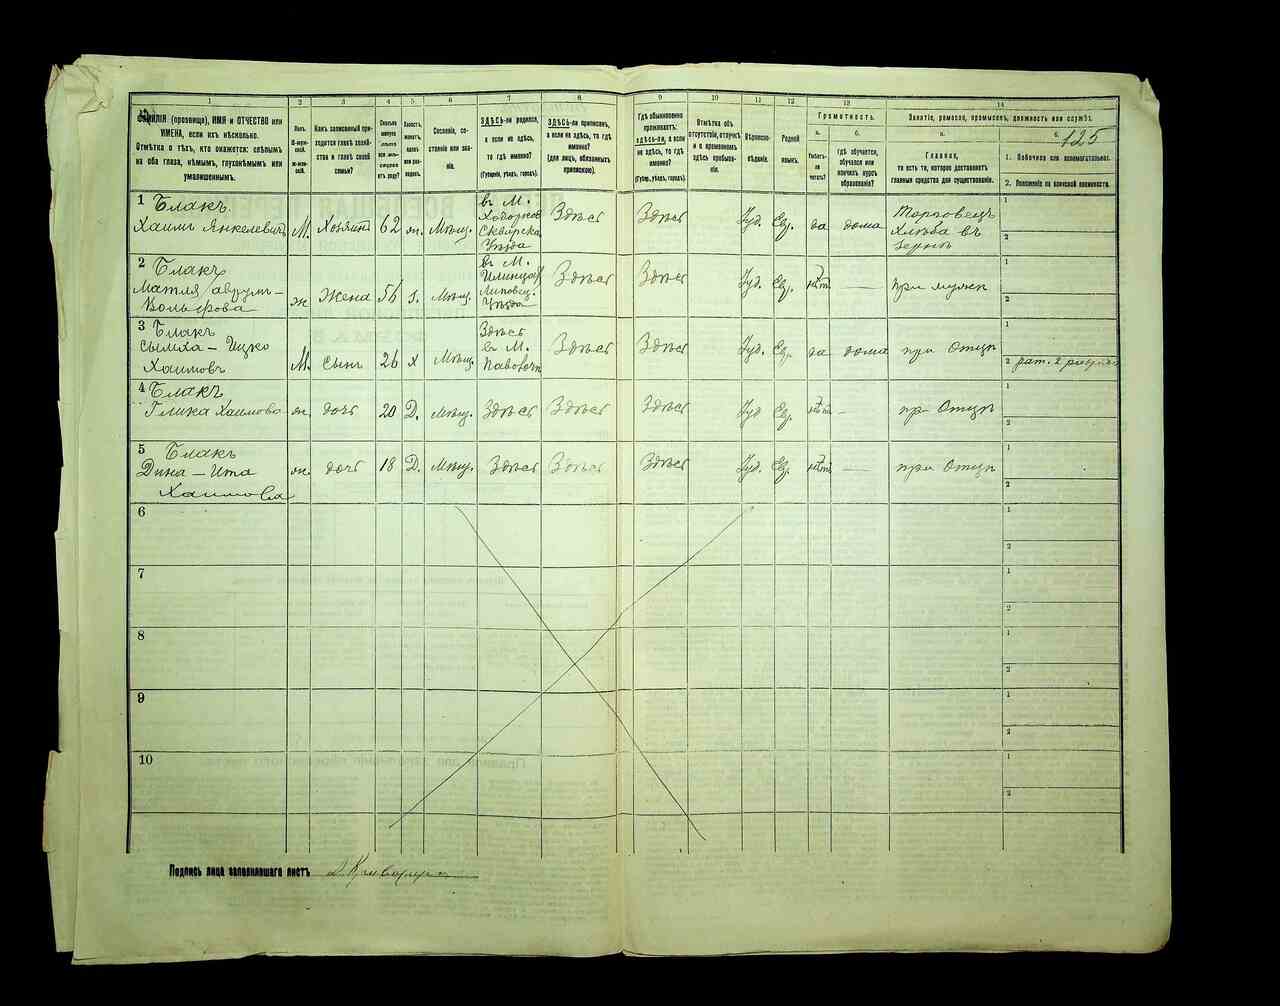 1 2 3 4 5 6 7 8 9 10 11 12 13 14
ФАМИЛІЯ (прозвище), ИМЯ и ОТЧЕСТВО или
ИМЕНА, если ихъ нѣсколько.
Отмѣтка о тѣхъ, кто окажется: слѣпымъ
на оба глаза, нѣмымъ, глухонѣмымъ или
умалишеннымъ.
Полъ.
М-муж-
ской.
Ж-жен-
скій.
Какъ записанный при-
ходится главѣ хозяй-
ства и главѣ своей
семьи?
Сколько
минуло
лѣтъ
отъ роду?
Холостъ,
женатъ,
вдовъ
или раз-
веденъ.
Сословіе, со-
стояніе или зва-
ніе.
ЗДѢСЬ-ли родился,
а если не здѣсь,
то гдѣ именно?
(Губернія, уѣздъ, городъ).
ЗДѢСЬ-ли приписанъ,
а если не здѣсь, то гдѣ
именно?
(для лицъ, обязанныхъ
припискою).
Гдѣ обыкновенно
проживаетъ:
здѣсь-ли, а если
не здѣсь, то гдѣ
именно?
(Губер., уѣздъ, городъ).
Отмѣтка объ
отсутствіи, отлучкѣ
и о временномъ
здѣсь пребыва-
ніи.
Вѣроиспо-
вѣданіе.
Родной
языкъ.
Грамотность.
а.
Умѣетъ-
ли
читать?
б.
гдѣ обучается,
обучался или
кончилъ курсъ
образованія?
Занятіе, ремесло, промыселъ, должность или служба.
а.
Главное,
то есть то, которое доставляетъ
главныя средства для существованія.
б.
125
1. Побочное или вспомогательное.
2. Положеніе по воинской повинности.
1 Блакъ
Хаимъ Янкелевичъ М. Хозяинъ 62 ж. Мѣщ.
въ М.
Ходорков
Сквирска
Уѣзда
Здѣсь Здѣсь Іуд. Евр. да дома
Торговецъ
Хлѣба въ
зернѣ
1
2
2 Блакъ
Матля Аврумъ-
Вольфова ж Жена 56 з. Мѣщ.
въ М.
Илинцах
Липовец.
Уѣзда
Здѣсь Здѣсь Іуд. Евр. нѣтъ — при мужѣ
1
2
3 Блакъ
Сымха-Ицко
Хаимовъ М. Сынъ 26 Х Мѣщ.
Здѣсь
въ М.
Паволочъ
Здѣсь Здѣсь Іуд. Евр. да дома при Отцѣ
1
2 рат. 2 разряда
4 Блакъ
Глика Хаимова ж. дочь 20 Д. Мѣщ. Здѣсь Здѣсь Здѣсь Іуд Евр. нѣтъ — при Отцѣ
1
2
5 Блакъ
Дина-Ита
Хаимова ж. дочь 18 Д. Мѣщ. Здѣсь Здѣсь Здѣсь Іуд. Евр. нѣтъ — при Отцѣ
1
2
6
1
2
7
1
2
8
1
2
9
1
2
10
1
2
Подпись лица заполнявшаго листъ